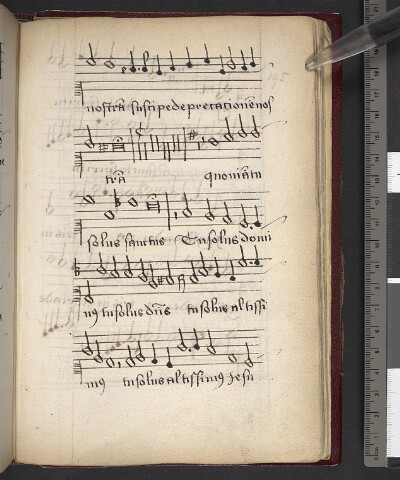 nostrā suscipe deprecationē nos
trā quoniā tu
solus sanctus Tu solus domi
nus tu solus dn̄s tu solus altissi
mus tu solus altissimus Jesu